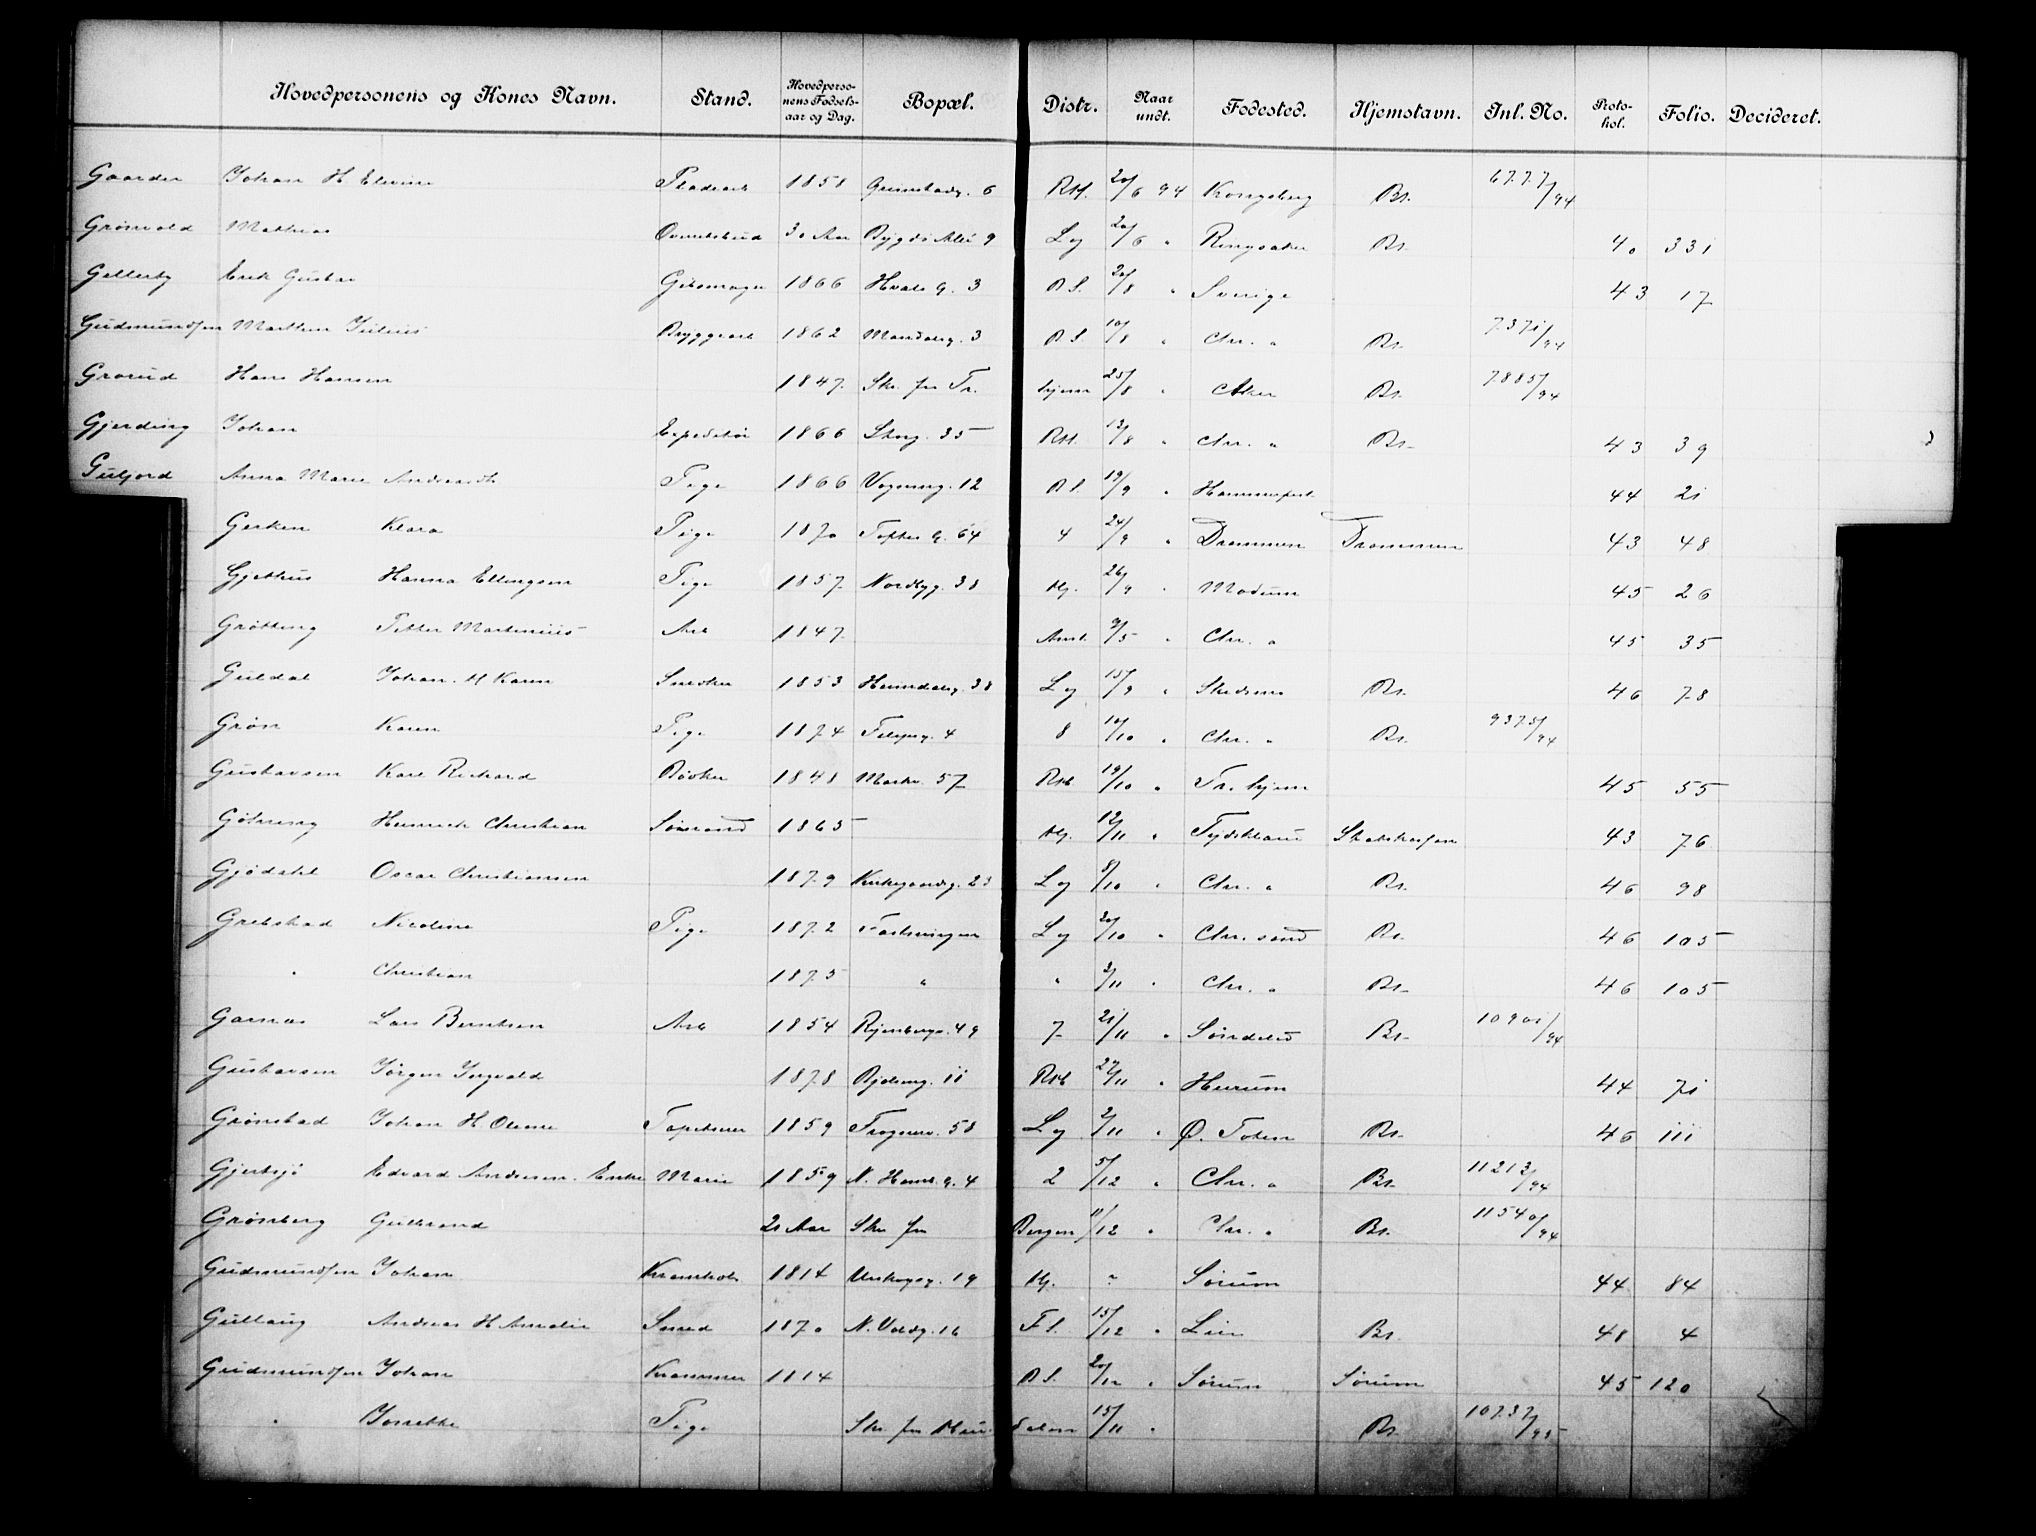 Hovedpersonens og Kones Navn. Stand. Hovedperso-nens Fødsels-aar og Dag. Bopæl. Distr. Naar undt. Fødested. Hjemstavn. Inl. No. Proto-kol. Folio. Decideret.
Gaarder Johan H Elevine 1858 6 RH. 20/6 94 Kongsberg Br. 6777/94
Grønvold Mathias 30 Aar Bygdø Alle 9 Lg 20/6 " Ringsaker Br. 40 331
Gellerby Erik Gustav 1866 Hvals g. 3 R S. 20/8 " Sverige 43 17
Gudmundsen Marthin Julius Bryggearb 1862 Mandalsg. 3 R S. 10/8 " Chr. " Br. 7371/94
Grorud Hans Hansen 1847 Skr. fra Tr. hjem 25/8 " Aker Br. 7885/94
Gjerding Johan Expeditør 1866 Storg. 35 RH. 13/8 " Chr. " Br. 43 39
Guljord Anna Marie Pige 1866 Vognmg. 12 R S. 19/9 " Hammerfest 44 21
Gerken Klara Pige 1870 Toftes g. 64 4 24/9 " Drammen Drammen 43 48
Gjethus Hanna Ellingsen Pige 1857 Nordbyg. 38 Kg. 26/9 " Modum 45 26
Grøtting Petter Martinius Arb 1847 /5 " Chr. " 45 35
Guldal Johan. H Karen Snedker 1853 Heimdalsg. 38 Lg 15/9 " Skedsmo Br. 46 78
Grøn Karen Pige 1874 4 8 10/10 " Chr. " Br. 9375/94
Gustavsen Karl Richard Bødker 1848 Markv. 57 RH 19/10 " Tr. hjem 45 55
Gøhring Heinrich Christian Sømand 1865 Kg. 12/11 " Tydskland 43 76
Gjødahl Oscar Christiansen 1879 Kirkegaardsg. 23 Lg 8/10 " Chr. " Br. 46 98
Grebstad Nicoline Pige 1872 Lg 20/10 " Chr. sand Br. 46 105
" Christian 1875 " " 2/11 " Chr. " Br. 46 105
Garnas Lars Berntsen Arb 1854 Ryenbergv. 49 7 21/11 " Søndeled Br. 10901/94
Gustavsen Jørgen Ingvald 1878 11 RH 27/11 " Hurum 44 71
Grønstad Johan H Oline Tapetserer 1859 Frognerv. 58 Lg 2/11 " Ø. Toten Br. 46 111
Gjertsjø Edvard Andersen. Enke Marie 1859 N. Hamb. g. 4 2 5/12 " Chr. " Br. 11213/94
Grønberg Gulbrand 21 Aar Skr fra Bergen 11/12 " Chr. " Br. 11540/94
Gudmundsen Johan 1814 19 Kg. " Sørum 44 84
Gullaug Andreas H Amalie Smed 1870 N. Voldg. 16 F S. 15/12 " Lier Br. 48 4
Gudmundsen Johan Kræmmer 1814 R S. 20/12 " Sørum Sørum 45 120
" Josefine Pige Skr fra 15/11 " Br. 10737/95